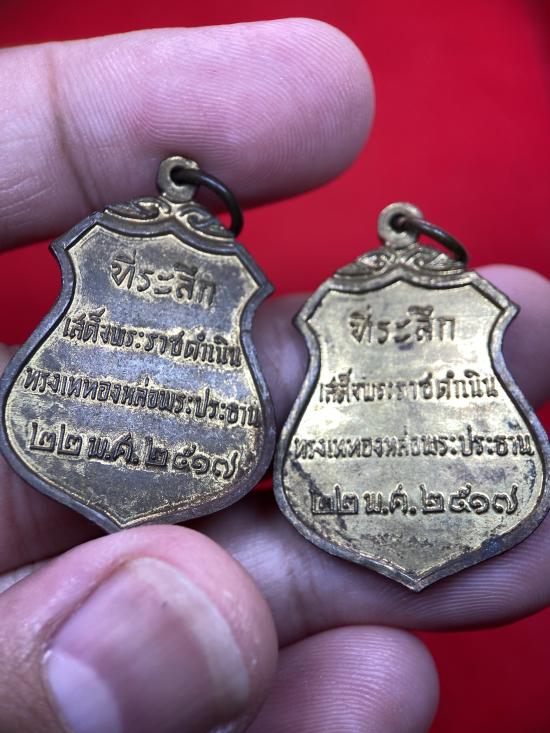 ที่ระลึก
เสด็จพระราชดำเนิน
ทรงเททองหล่อพระประธาน
๒๒ พ.ศ. ๒๕๑๗
ที่ระลึก
เสด็จพระราชดำเนิน
ทรงเททองหล่อพระประธาน
๒๒ พ.ศ. ๒๕๑๗